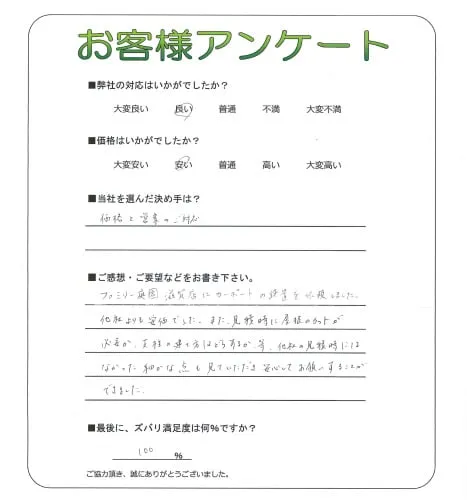 お客様アンケート
■弊社の対応はいかがでしたか？
大変良い 良い 普通 不満 大変不満
■価格はいかがでしたか？
大変安い 安い 普通 高い 大変高い
■当社を選んだ決め手は？
価格と営業のご対応
■ご感想・ご要望などをお書き下さい。
ファミリー庭園 滋賀店にカーポートの設置を依頼しました。
他社よりも安価でした。また、見積時に屋根のカットが
必要か、支柱の建て方はどうするか 等、他社の見積時には
なかった細かな点も見ていただき安心してお願いすることが
できました。
■最後に、ズバリ満足度は何％ですか？
100 %
ご協力頂き、誠にありがとうございました。